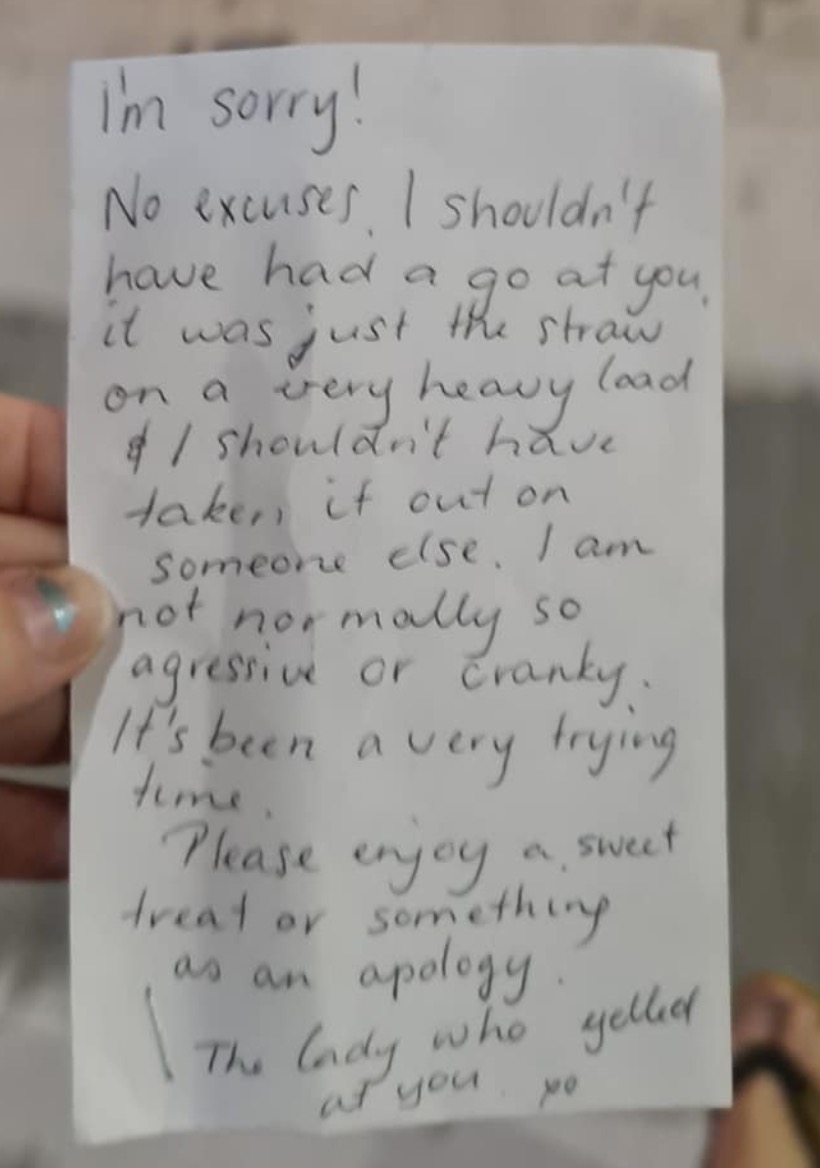 I'm sorry!
No excuses, I shouldn't
have had a go at you,
it was just the straw
on a very heavy load
& I shouldn't have
taken it out on
someone else. I am
not normally so
agressive or cranky.
It's been a very trying
time.
Please enjoy a sweet
treat or something
as an apology.
The lady who yelled
at you. xo